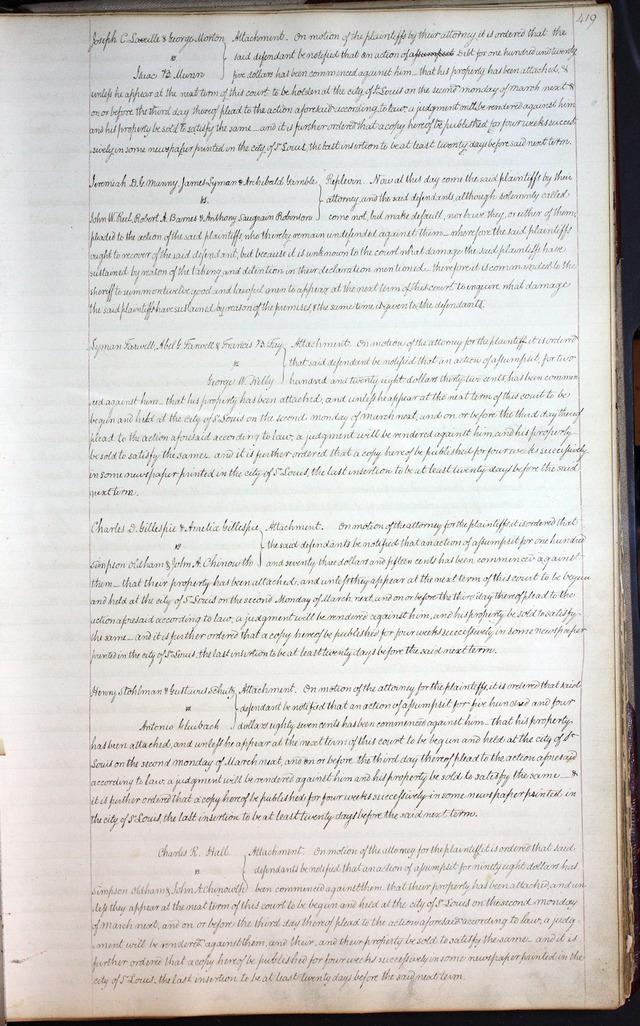 419
Joseph C. Laveille & George Morton } Attachment. On motion of the plaintiffs by their attorney, it is ordered that the
vs said defendant be notified that an action of assumpsit debt for one hundred and twenty
Isaac B. Munn five dollars has been commenced against him – that his property has been attached, &
unless he appear at the next term of this court to be holden at the city of St Louis on the second monday of march next &
on or before the third day thereof plead to the action aforesaid according to law, a judgment will be rendered against him
and his property be sold to satisfy the same – and it is further ordered that a copy hereof be published for four weeks succes
-sively in some newspaper printed in the city of St Louis, the last insertion to be at least twenty days before said next term.
Jeremiah D. G. Munny, James Lyman & Archibald Gamble } Replevin. Now at this day come the said plaintiffs by their
vs. attorney, and the said defendants, although solemnly called
John W. Reel, Robert A. Barnes & Anthony Saugrain Robinson come not, but make default, nor have they, or either of them,
pleaded to the action of the said plaintiffs, who thereby remain undefended against them – wherefore the said plaintiffs
ought to recover of the said defendant, but because it is unknown to the court what damage the said plaintiffs have
sustained by reason of the taking and detention in their declaration mentioned therefore it is commanded to the
sheriff to summon twelve good and lawful men to appear at the next term of this court to inquire what damage
the said plaintiffs have sustained by reason of the premises, & the same time is given to the defendants.
Lyman Farwell, Abel G. Farwell & Francis B. Fay } Attachment. On motion of the attorney for the plaintiff, it is ordered
vs that said defendant be notified that an action of assumpsit, for two
George W. hundred and twenty eight dollars thirty-two cents, has been commen
ced against him – that his property has been attached, and unless he appear at the next term of this court to be
begun and held at the city of St Louis on the second monday of March next, and on or before the third day thereof
plead to the action aforesaid according to law, a judgment will be rendered against him, and his property
be sold to satisfy the same – and it is further ordered that a copy hereof be published for four weeks successively
in some newspaper printed in the city of St Louis, the last insertion to be at least twenty days before the said
next term.
Charles D. Gillespie & Amelia Gillespie } Attachment. On motion of the attorney for the plaintiffs, it is ordered that
vs the said defendants be notified that an action of assumpsit for one hundred
Simpson Oldham & John A. Chinowth and seventy three dollars and fifteen cents has been commenced against
them – that their property has been attached, and unless they appear at the next term of this court to be begun
and held at the city of St Louis on the second Monday of March next, and on or before the third day thereof plead to the
action aforesaid according to law, a judgment will be rendered against him, and his property be sold to satisfy
the same – and it is further ordered that a copy hereof be published for four weeks successively in some newspaper
printed in the city of St. Louis, the last insertion to be at least twenty days before the said next term.
Henry Stohlman & Gustavus Schutz } Attachment. On motion of the attorney for the plaintiffs, it is ordered that said
vs defendant be notified that an action of assumpsit for five hundred and four
Antonio dollars eighty seven cents has been commenced against him – that his property
has been attached, and unless he appear at the next term of this court to be begun and held at the city of St
Louis on the second monday of March next, and on or before the third day thereof plead to the action aforesaid
according to law, a judgment will be rendered against him and his property be sold to satisfy the same – &
it is further ordered that a copy hereof be published for four weeks successively in some newspaper printed in
the city of St. Louis, the last insertion to be at least twenty days before the said next term.
Charles R. Hall } Attachment. On motion of the attorney for the plaintiff, it is ordered that said
vs defendants be notified that an action of assumpsit for ninety eight dollars has
Simpson Oldham & John A Chinowth been commenced against them, that their property has been attached, and un-
less they appear at the next term of this court to be begun and held at the city of St Louis on the second monday
of march next, and on or before the third day thereof plead to the action aforesaid according to law, a judg-
ment will be rendered against them, and their, and their property be sold to satisfy the same – and it is
further ordered that a copy hereof be published for four weeks successively in some newspaper printed in the
city of St Louis, the last insertion to be at least twenty days before the said next term.